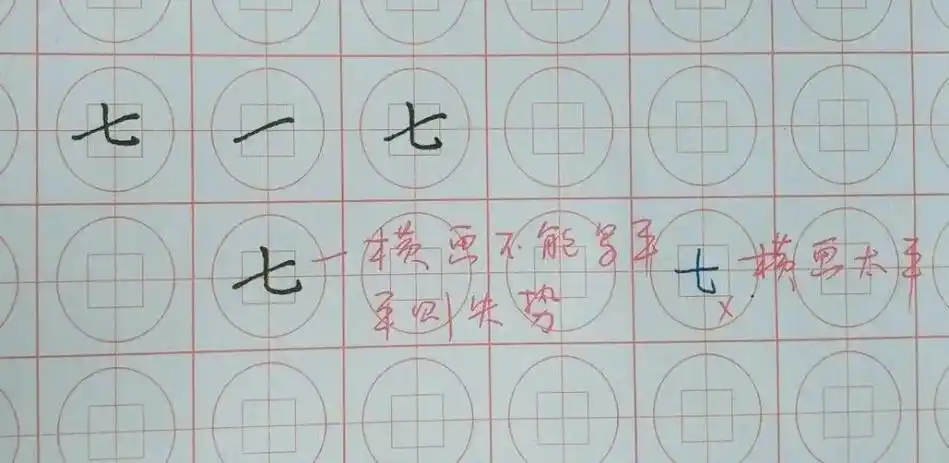 七 一 七
七 一 横画不能写平 七 一 横画太平
平则失势 x